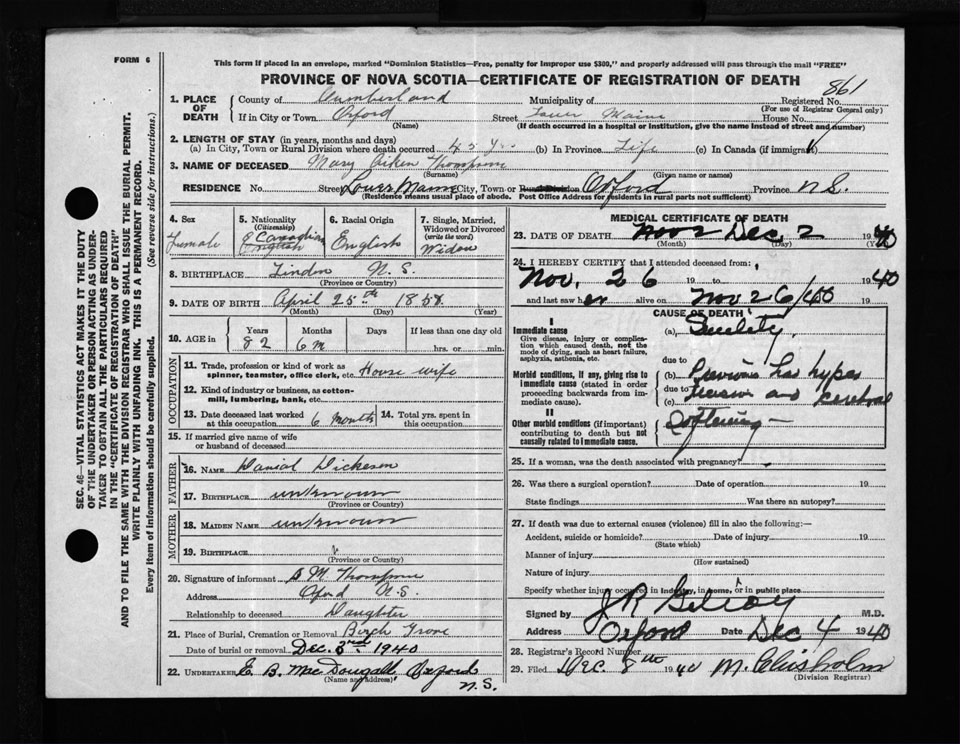 FORM 6
This form if placed in an envelope, marked "Dominion Statistics—Free, penalty for improper use $300," and properly addressed will pass through the mail "FREE"
PROVINCE OF NOVA SCOTIA—CERTIFICATE OF REGISTRATION OF DEATH
861
1. PLACE OF DEATH
County of Cumberland Municipality of Registered No.
(For use of Registrar General only)
If in City or Town Oxford Street Lower Main House No.
(Name) (If death occurred in a hospital or institution, give the name instead of street and number)
2. LENGTH OF STAY (in years, months and days)
(a) In City, Town or Rural Division where death occurred 45 yrs (b) In Province Life (c) In Canada (if immigrant)
3. NAME OF DECEASED Mary Aiken Thompson
(Surname) (Given name or names)
RESIDENCE No. Street Lower Main City, Town or Rural Division Oxford Province N.S.
(Residence means usual place of abode. Post Office Address for residents in rural parts not sufficient)
4. Sex
Female
5. Nationality (Citizenship)
Canadian
English
6. Racial Origin
English
7. Single, Married, Widowed or Divorced (write the word)
Widow
8. BIRTHPLACE N.S.
(Province or County)
9. DATE OF BIRTH April 25th
(Month) (Day) (Year)
10. AGE in
Years Months Days If less than one day old
82 6 m hrs. or min.
OCCUPATION
11. Trade, profession or kind of work as spinner, teamster, office clerk, etc. House wife
12. Kind of industry or business, as cotton-mill, lumbering, bank, etc.
13. Date deceased last worked at this occupation 6 months
14. Total yrs. spent in this occupation
15. If married give name of wife or husband of deceased
FATHER
16. NAME Danial Dickeson
17. BIRTHPLACE unknown
(Province or Country)
MOTHER
18. MAIDEN NAME unknown
19. BIRTHPLACE
(Province or Country)
20. Signature of informant M. Thompson
Address Oxford N.S.
Relationship to deceased Daughter
21. Place of Burial, Cremation or Removal Birch Grove
Date of burial or removal Dec. 3rd. 1940
22. UNDERTAKER E. B. MacDougall Oxford
(Name and address) N.S.
MEDICAL CERTIFICATE OF DEATH
23. DATE OF DEATH Nov 2 Dec 2 1940
(Month) (Day) (Year)
24. I HEREBY CERTIFY that I attended deceased from:
Nov. 26 19 to 1940
and last saw her alive on Nov 26/40 19
CAUSE OF DEATH
I
Immediate cause
Give disease, injury or complication which caused death, not the mode of dying, such as heart failure, asphyxia, asthenia, etc.
(a) Senility
due to
Morbid conditions, if any, giving rise to immediate cause (stated in order proceeding backwards from immediate cause).
(b) Previous has hyper
due to
(c) tension and cerebral
II
Other morbid conditions (if important) contributing to death but not causally related to immediate cause.
Softening —
25. If a woman, was the death associated with pregnancy?
26. Was there a surgical operation? Date of operation 19
State findings Was there an autopsy?
27. If death was due to external causes (violence) fill in also the following:—
Accident, suicide or homicide? Date of injury 19
(State which)
Manner of injury
(How sustained)
Nature of injury
Specify whether injury occurred in Industry, in home, or in public place
Signed by J R Gilroy M.D.
Address Oxford Date Dec 4 1940
28. Registrar's Record Number
29. Filed Dec. 5th 1940 M. Chisholm
(Division Registrar)
SEC. 46—VITAL STATISTICS ACT MAKES IT THE DUTY
OF THE UNDERTAKER OR PERSON ACTING AS UNDER-
TAKER TO OBTAIN ALL THE PARTICULARS REQUIRED
IN THE "CERTIFICATE OF REGISTRATION OF DEATH"
AND TO FILE THE SAME WITH THE DIVISION REGISTRAR WHO SHALL ISSUE THE BURIAL PERMIT.
WRITE PLAINLY WITH UNFADING INK. THIS IS A PERMANENT RECORD.
Every item of information should be carefully supplied. (See reverse side for instructions.)